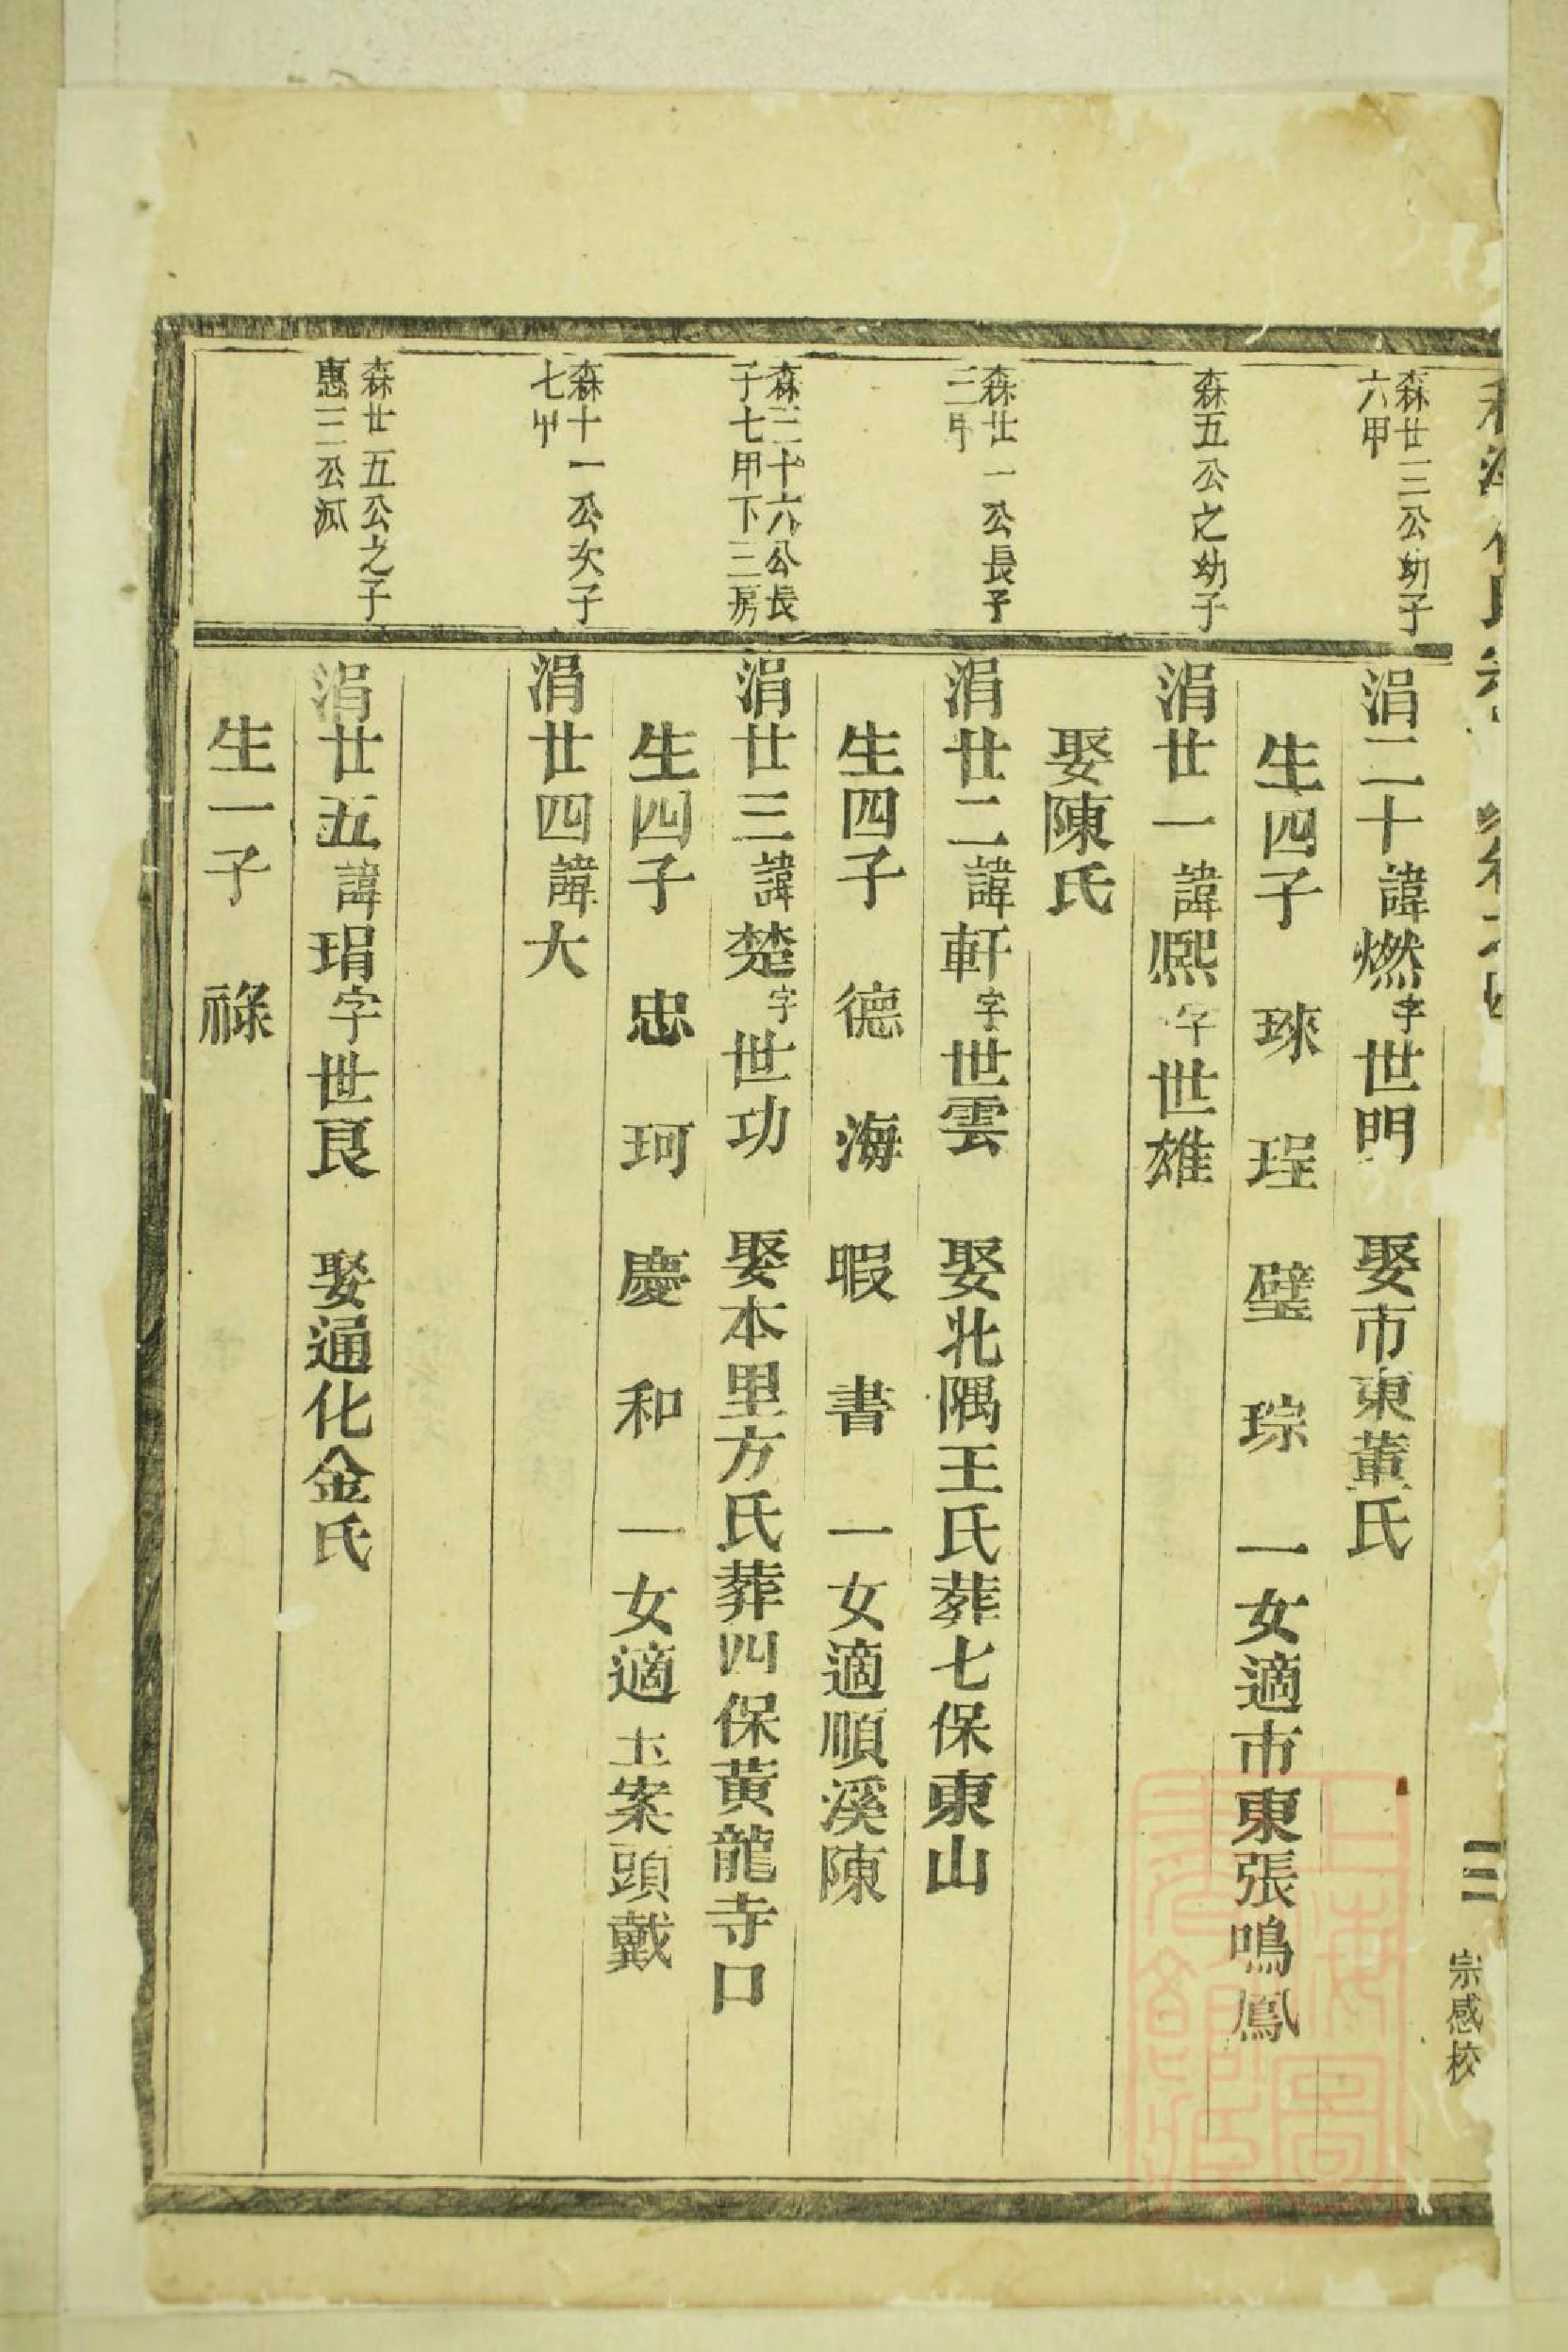 森廿三公幼子
六甲
涓二十諱燃字世明 娶市東董氏
生四子 琜 珵 璧 琮 一女適市東張鳴鳳
森五公之幼子
涓廿一諱熙字世雄
娶陳氏
森廿一公長子
三甲
涓廿二諱軒字世雲 娶北隅王氏葬七保東山
生四子 德 海 暇 書 一女適順溪陳
森三十六公長
子七甲下三房
涓廿三諱楚字世功 娶本里方氏葬四保黃龍寺口
生四子 忠 珂 慶 和 一女適玉案頭戴
森十一公次子
七甲
涓廿四諱大
森廿五公之子
惠三公派
涓廿五諱琄字世良 娶通化金氏
生一子 祿
三
宗感校
上海圖
書館藏